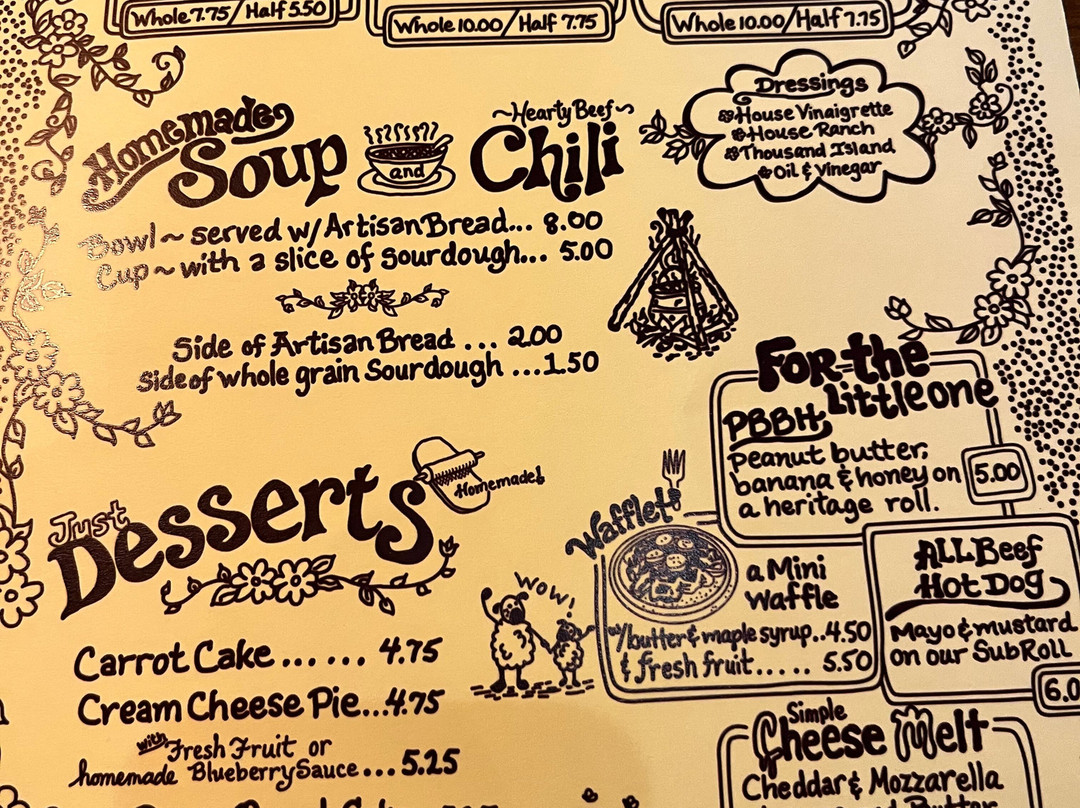 Whole 7.75 / Half 5.50
Whole 10.00 / Half 7.75
Whole 10.00 / Half 7.75
Dressings
House Vinaigrette
House Ranch
Thousand Island
Oil & Vinegar
Homemade
Soup
and
~Hearty Beef~
Chili
Bowl ~ served w/ Artisan Bread... 8.00
Cup ~ with a slice of sourdough... 5.00
Side of Artisan Bread ... 2.00
Side of whole grain Sourdough ...1.50
For the
Little one
PBBH
peanut butter,
banana & honey on
a heritage roll.
5.00
Wafflets
a Mini
waffle
w/butter & maple syrup..4.50
& fresh fruit..... 5.50
WOW!
ALL Beef
Hot Dog
Mayo & mustard
on our Sub Roll
6.0
Simple
Cheese Melt
Cheddar & Mozzarella
Just
Desserts
Homemade!
Carrot Cake ...... 4.75
Cream Cheese Pie...4.75
with Fresh Fruit or
homemade Blueberry Sauce ... 5.25